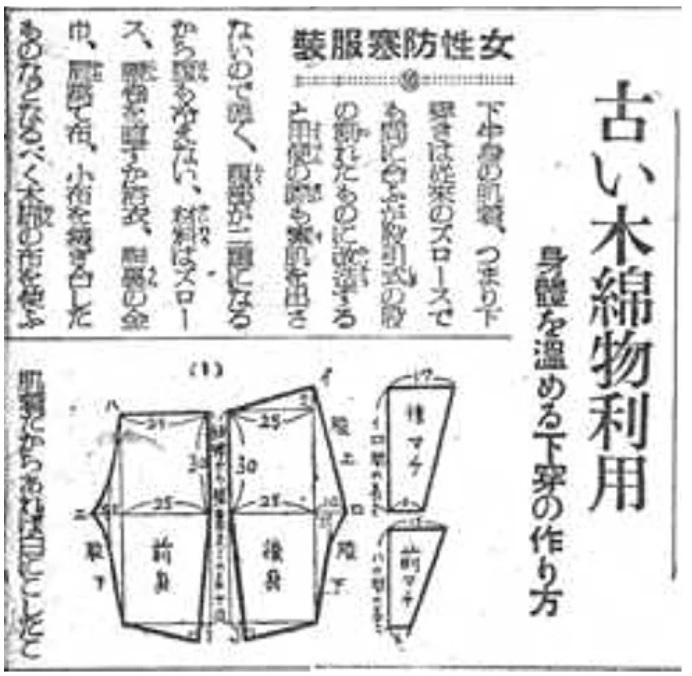 古い木綿物利用
身體を溫める下穿の作り方
女性防寒服裝
下半身の肌着、つまり下
穿きは從來のズロースで
も間に合ふが股引式の股
の割れたものに改造する
と用便の際も素肌を出さ
ないので溫く、腹部が二重になる
から腹も冷えない、材料はズロー
ス、腰卷を直すか浴衣、胴裏の金
巾、肩當て布、小布を接ぎ合した
ものなどなるべく木綿の布を使ふ
肌着だからあれば白にこしたこ
(1)
17
後マチ
前マチ
イ
股上
ロ
股下
25
30
25
10
後身
ハ
30
25
ニ
股下
前身